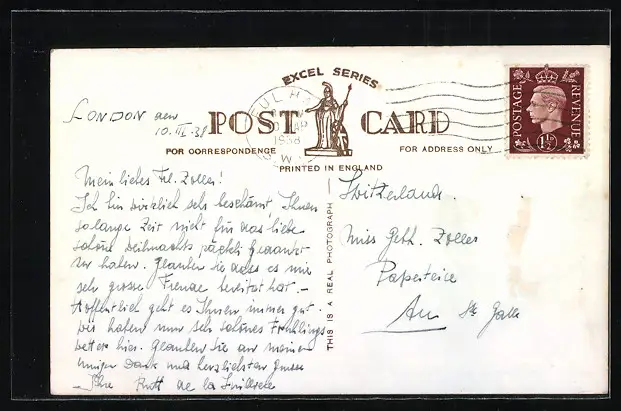 EXCEL SERIES
POST CARD
FOR CORRESPONDENCE
FOR ADDRESS ONLY
PRINTED IN ENGLAND
THIS IS A REAL PHOTOGRAPH
FULHAM
1938
W
POSTAGE REVENUE
1½D
LONDON den
10.III.38
Mein liebes Frl. Zoller!
Ich bin wirklich sehr beschämt Ihnen
solange Zeit nicht für das liebe
schöne Weihnachts päckli gedankt
zu haben. Glauben sie dass es mir
sehr grosse Freude bereitet hat. -
Hoffentlich geht es Ihnen immer gut.
Wir haben nun sehr schönes Frühlings
wetter hier. Glauben Sie an meinen
innigen Dank und herzlichsten Grüsse
Ihre Rutt de la
Switzerland.
Miss Zoller
Au St Gall